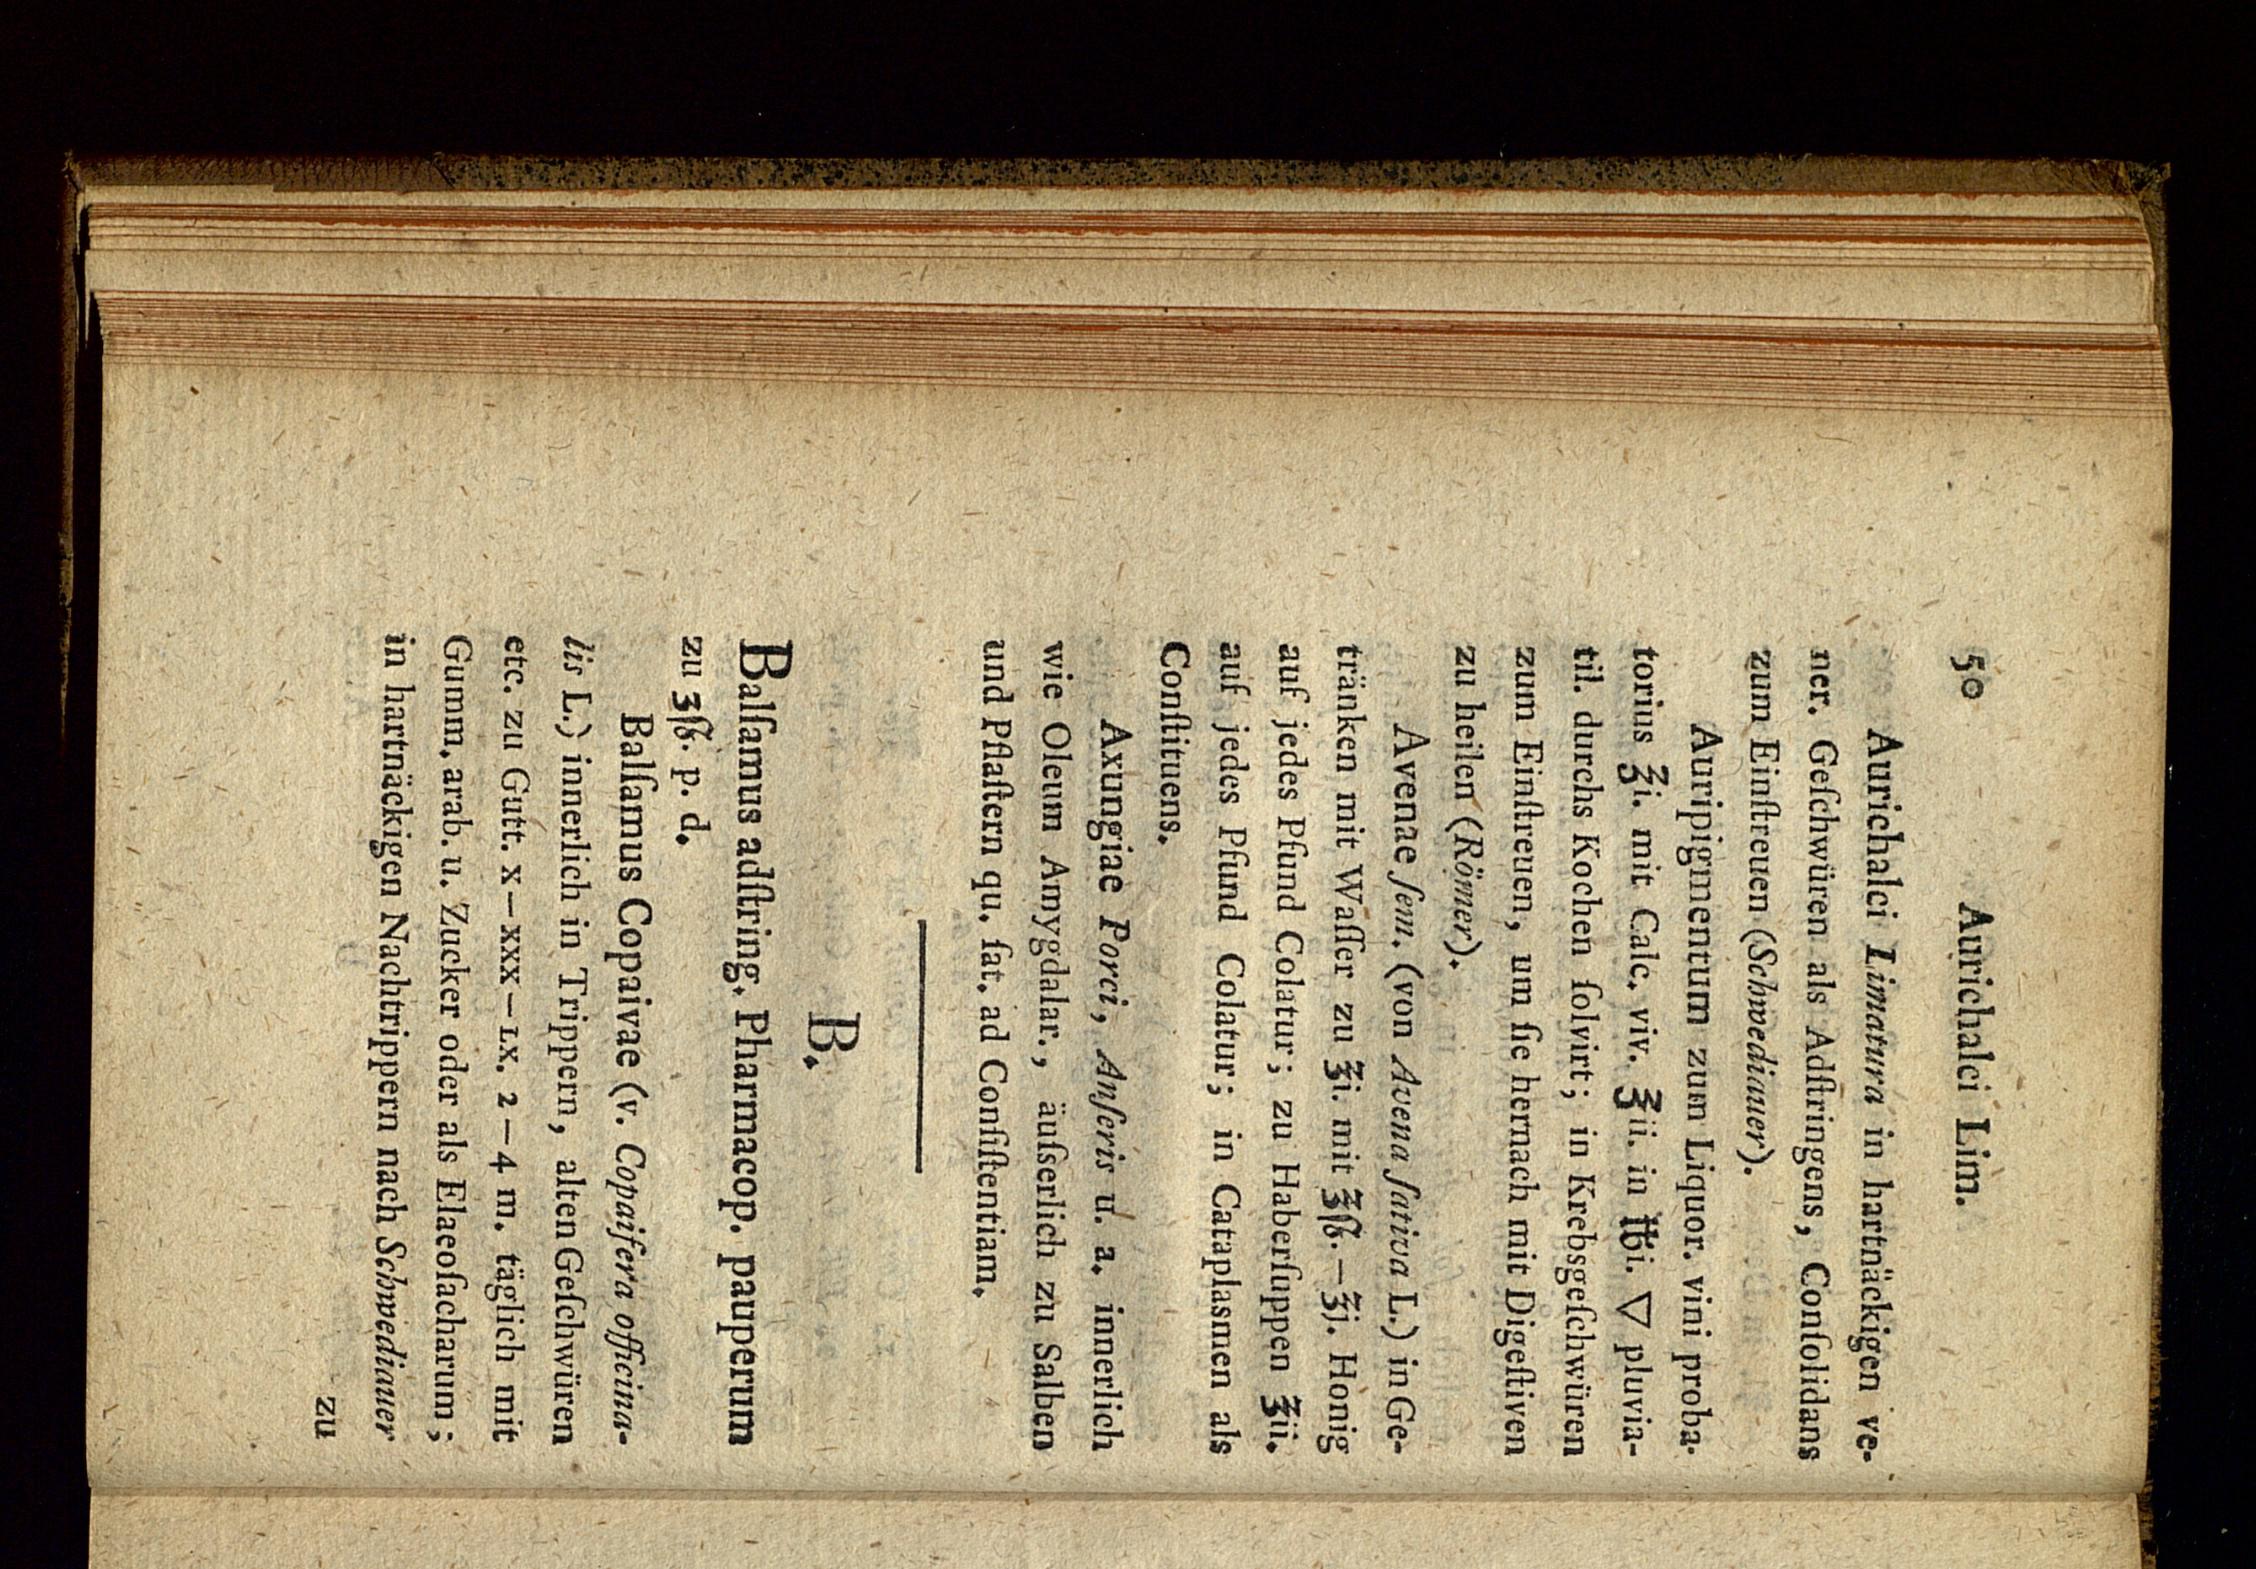 50 Aurichalci Lim.
Aurichalci Limatura in hartnäckigen ve-
ner. Geſchwüren als Adſtringens, Conſolidans
zum Einſtreuen (Schwediauer).
Auripigmentum zum Liquor. vini proba-
torius ℥i. mit Calc. viv. ℥ii. in ℔i. ▽ pluvia-
til. durchs Kochen ſolvirt; in Krebsgeſchwüren
zum Einſtreuen, um ſie hernach mit Digeſtiven
zu heilen (Römer).
Avenae ſem. (von Avena ſativa L.) in Ge-
tränken mit Waſſer zu ℥i. mit ℥ſß. – ℥j. Honig
auf jedes Pfund Colatur; zu Haberſuppen ℥ii.
auf jedes Pfund Colatur; in Cataplasmen als
Conſtituens.
Axungiae Porci, Anſeris u. a. innerlich
wie Oleum Amygdalar., äuſserlich zu Salben
und Pflaſtern qu. ſat. ad Conſiſtentiam.
B.
Balſamus adſtring. Pharmacop. pauperum
zu ʒſß. p. d.
Balſamus Copaivae (v. Copaifera officina-
lis L.) innerlich in Trippern, alten Geſchwüren
etc. zu Gutt. X – XXX – LX. 2 – 4 m. täglich mit
Gumm. arab. u. Zucker oder als Elaeoſacharum;
in hartnäckigen Nachtrippern nach Schwediauer
zu